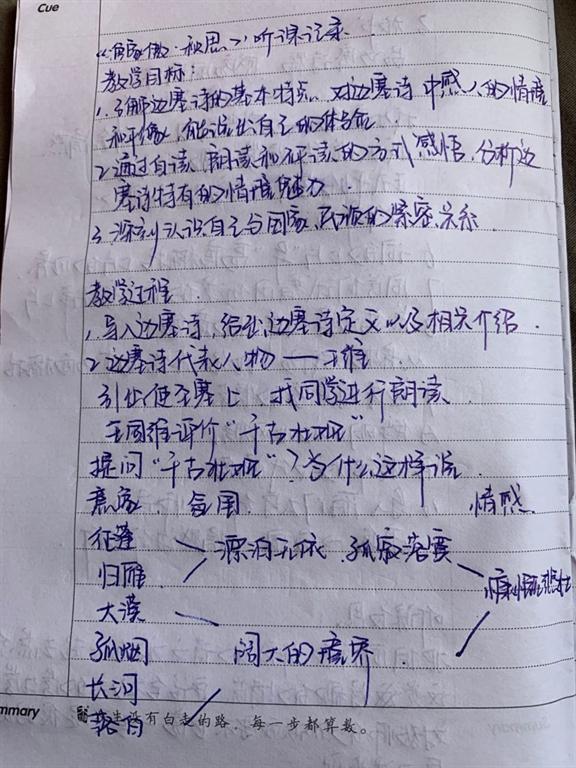 Cue
《渔家傲·秋思》听课记录
教学目标:
1.了解边塞诗的基本特点,对边塞诗中感人的情境
和形象,能说出自己的体验
2.通过自读、朗读和评读的方式感悟、分析边
塞诗特有的情境魅力.
3.深刻认识自己与国家、民族的紧密关系
教学过程
1.导入边塞诗,给出边塞诗定义以及相关介绍.
2.边塞诗代表人物——王维
引出使至塞上,找同学进行朗读
王国维评价"千古壮观"
提问"千古壮观"?为什么这样说.
意象 氛围 情感
征蓬 漂泊无依 孤寂落寞
归雁
大漠 慷慨悲壮
孤烟 阔大的境界
长河
落日
mmary
人生没有白走的路,每一步都算数。